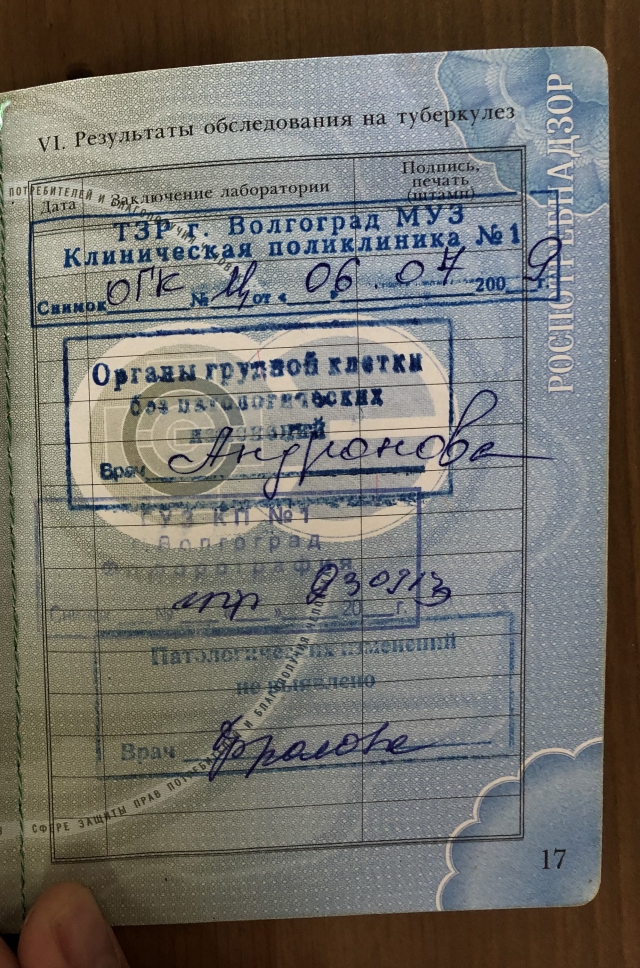 VI. Результаты обследования на туберкулез
Дата
Заключение лаборатории
Подпись,
печать
(штамп)
ТЗР г. Волгоград МУЗ
Клиническая поликлиника №1
Снимок ОГК № от « 06 07 2009 г.
Органы грудной клетки
без патологических
изменений
Врач Андронова
ГУЗ КП №1
г. Волгоград
Флюорография
№ 20 г.
030913
Патологических изменений
не выявлено
Врач Фролова
РОСПОТРЕБНАДЗОР
ПОТРЕБИТЕЛЕЙ И БЛАГОПОЛУЧИЯ
СФЕРЕ ЗАЩИТЫ ПРАВ ПОТРЕБИ
И БЛАГОПОЛУЧИЯ
17